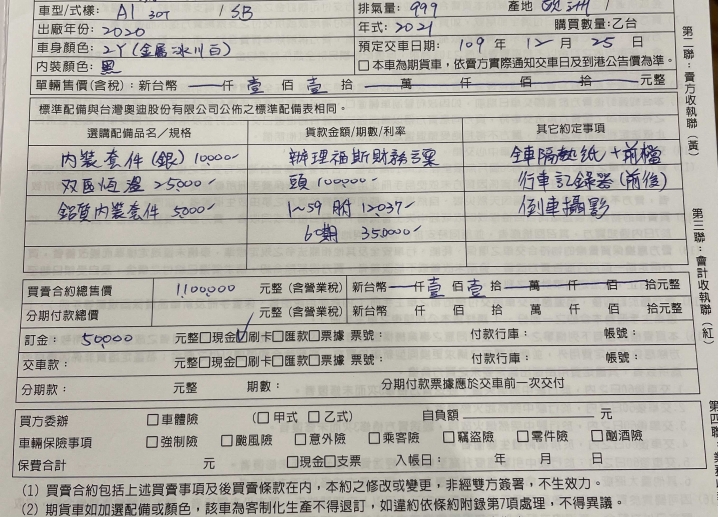 車型/式樣: A1 30T / SB 排氣量: 999 產地 歐洲 /
出廠年份: 2020 年式: 2021 購買數量: 乙台
車身顏色: 2Y (金屬冰川白) 預定交車日期: 109 年 12 月 25 日
內裝顏色: 黑 □本車為期貨車,依賣方實際通知交車日及到港公告價為準。
單輛售價(含稅):新台幣 仟 壹 佰 壹 拾 萬 仟 佰 拾 元整
標準配備與台灣奧迪股份有限公司公佈之標準配備表相同。
選購配備品名/規格 貨款金額/期數/利率 其它約定事項
內裝套件(銀) 10000 辦理福斯財務課 全車隔熱紙+前檔
双區恆溫 25000 頭 100000 行車記錄器(前後)
鋁質內裝套件 5000 1~59 期 12037 倒車攝影
60期 350000
買賣合約總售價 1100000 元整 (含營業稅) 新台幣 仟 壹 佰 壹 拾 萬 仟 佰 拾元整
分期付款總價 元整 (含營業稅) 新台幣 仟 佰 拾 萬 仟 佰 拾元整
訂金: 50000 元整□現金☑刷卡□匯款□票據 票號: 付款行庫: 帳號:
交車款: 元整□現金□刷卡□匯款□票據 票號: 付款行庫: 帳號:
分期款: 元整 期數: 分期付款票據應於交車前一次交付
買方委辦 □車體險 (□甲式 □乙式) 自負額 元
車輛保險事項 □強制險 □颱風險 □意外險 □乘客險 □竊盜險 □零件險 □酗酒險
保費合計 元 □現金□支票 入帳日: 年 月 日
(1) 買賣合約包括上述買賣事項及後買賣條款在內,本約之修改或變更,非經雙方簽署,不生效力。
(2) 期貨車如加選配備或顏色,該車為客制化生產不得退訂,如違約依條約附錄第7項處理,不得異議。
第二聯:賣方收執聯(黃)
第三聯:會計收執聯(紅)
第四聯: